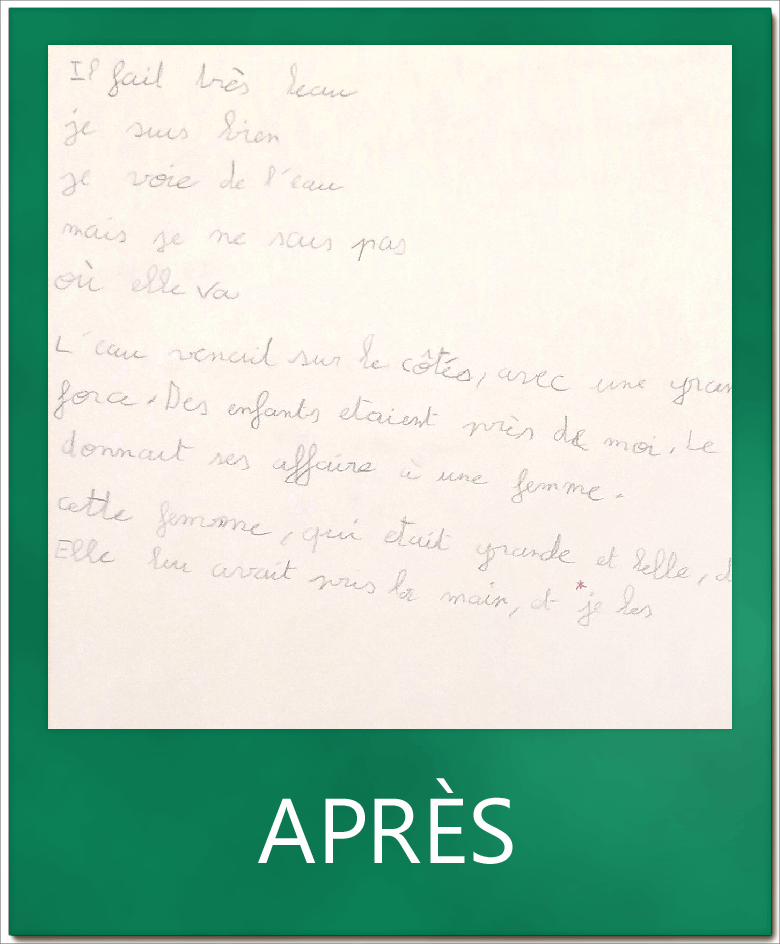 Il fait très beau
je suis bien
je voie de l'eau
mais je ne sais pas
où elle va
L'eau venait sur le côtés, avec une gran
force. Des enfants etaient près de moi. Le
donnait ses affaire à une femme.
cette femme, qui etait grande et belle, d
Elle lui avait pris la main, et *je les
APRÈS